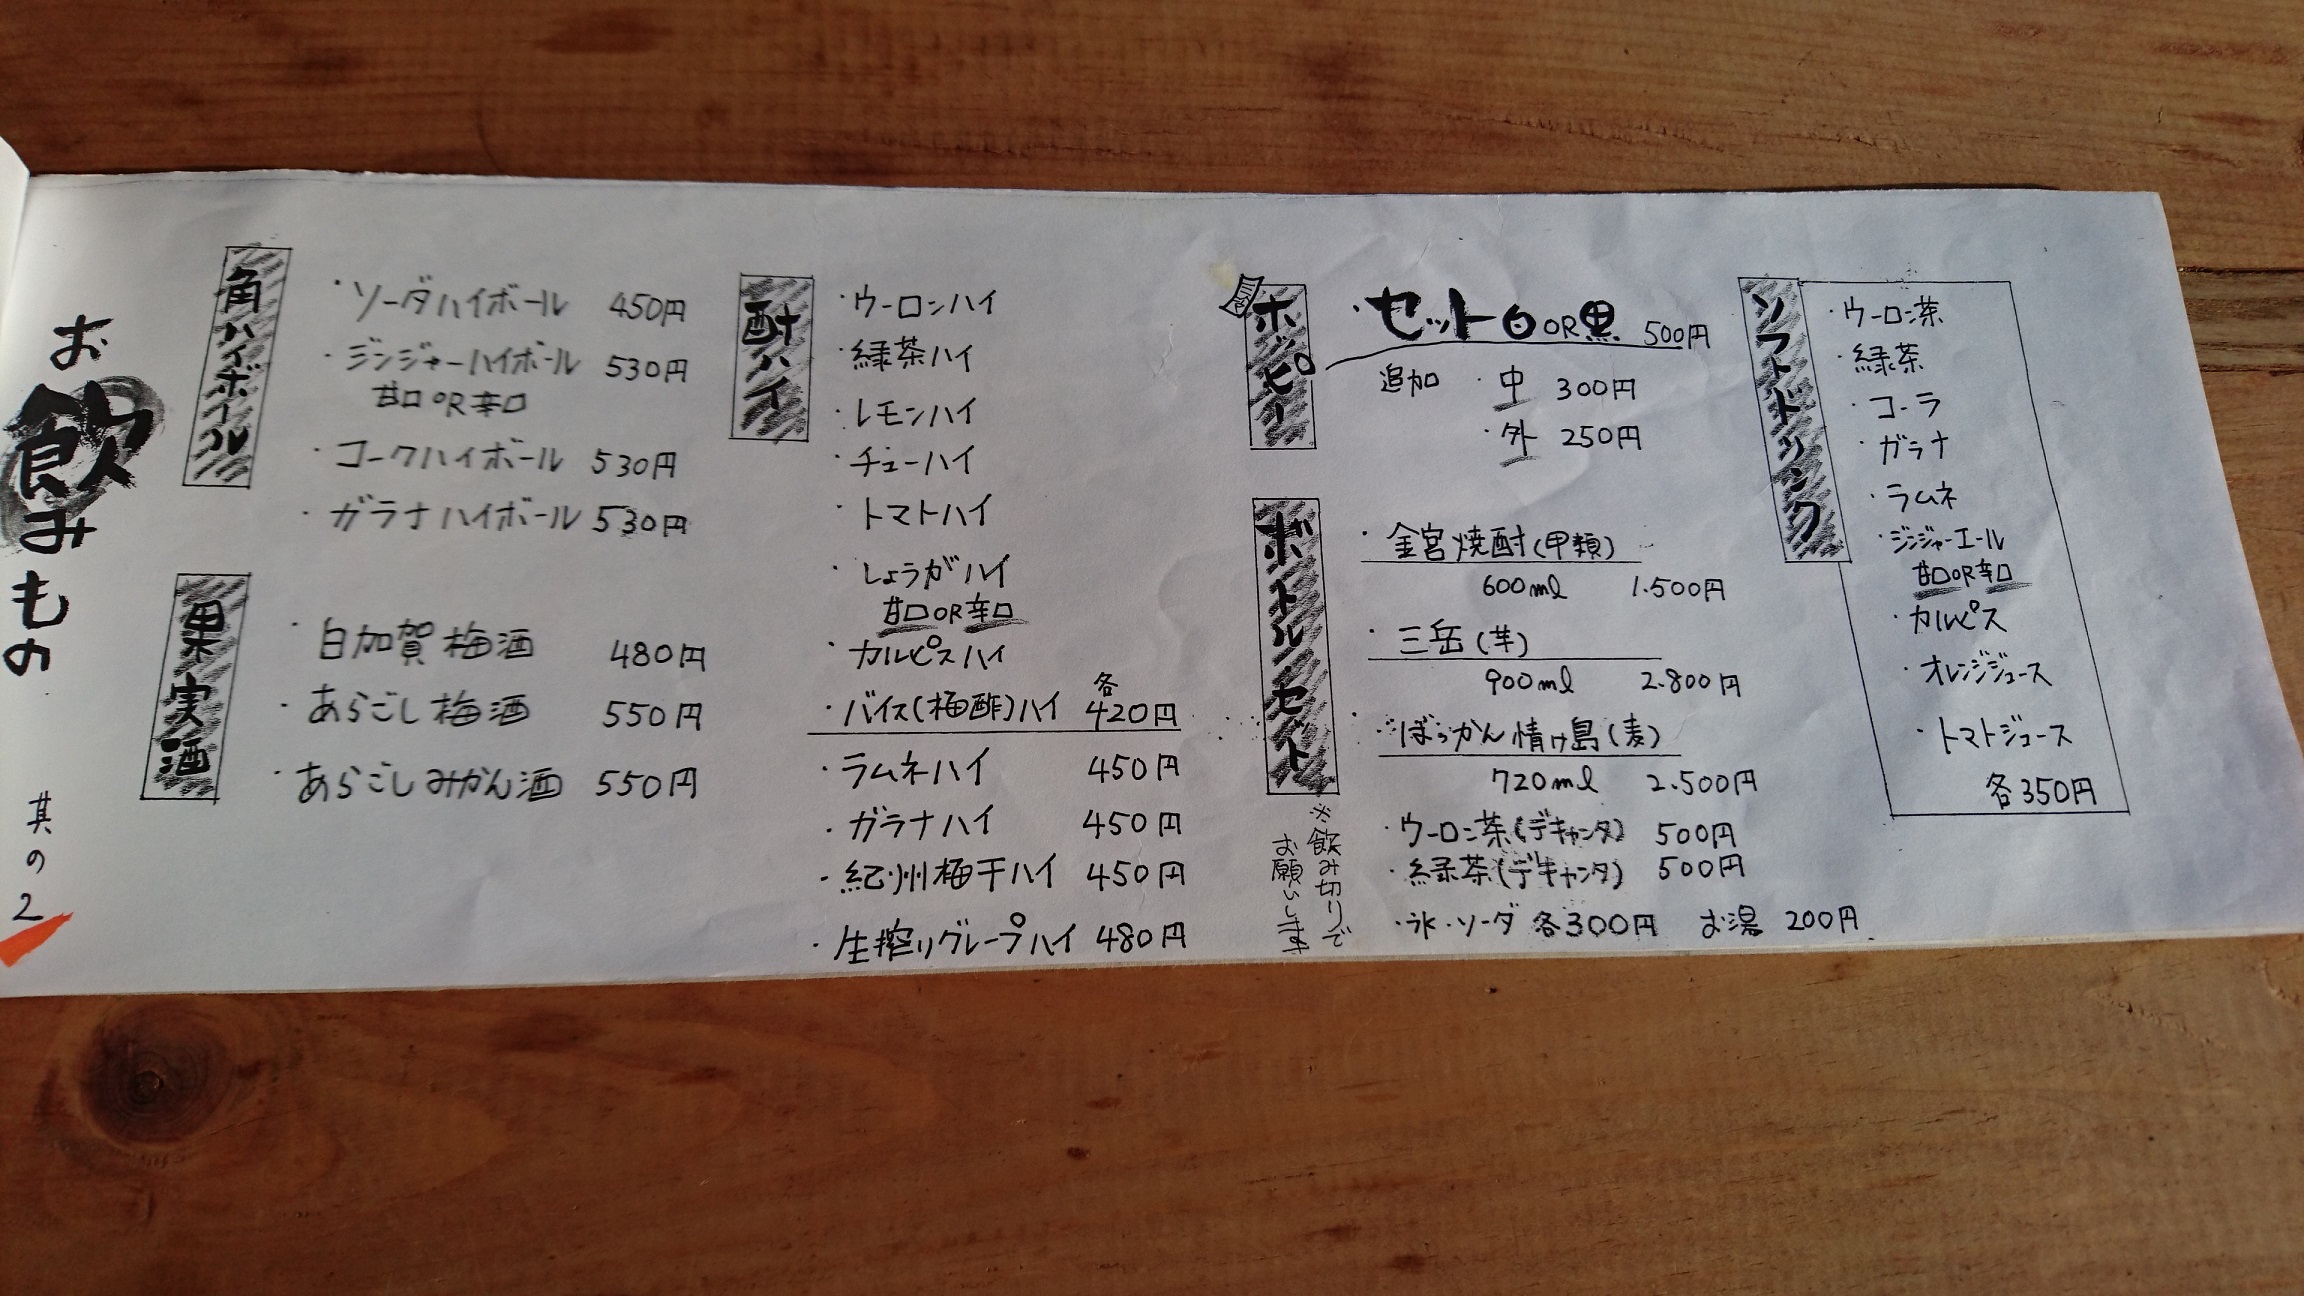 お飲みもの
其の2
角ハイボール
・ソーダハイボール 450円
・ジンジャーハイボール 530円
甘口OR辛口
・コークハイボール 530円
・ガラナハイボール 530円
果実酒
・白加賀梅酒 480円
・あらごし梅酒 550円
・あらごしみかん酒 550円
酎ハイ
・ウーロンハイ
・緑茶ハイ
・レモンハイ
・チューハイ
・トマトハイ
・しょうがハイ
甘口OR辛口
・カルピスハイ
・バイス(梅酢)ハイ 各420円
・ラムネハイ 450円
・ガラナハイ 450円
・紀州梅干ハイ 450円
・生搾りグレープハイ 480円
ホッピー
・セット白OR黒 500円
追加 ・中 300円
・外 250円
ボトルセット
※飲み切りで
お願いします
・金宮焼酎(甲類)
600ml 1.500円
・三岳(芋)
900ml 2.800円
・ぼっかん情け島(麦)
720ml 2.500円
・ウーロン茶(デキャンタ) 500円
・緑茶(デキャンタ) 500円
・氷・ソーダ 各300円 お湯 200円
ソフトドリンク
・ウーロン茶
・緑茶
・コーラ
・ガラナ
・ラムネ
・ジンジャーエール
甘口OR辛口
・カルピス
・オレンジジュース
・トマトジュース
各350円